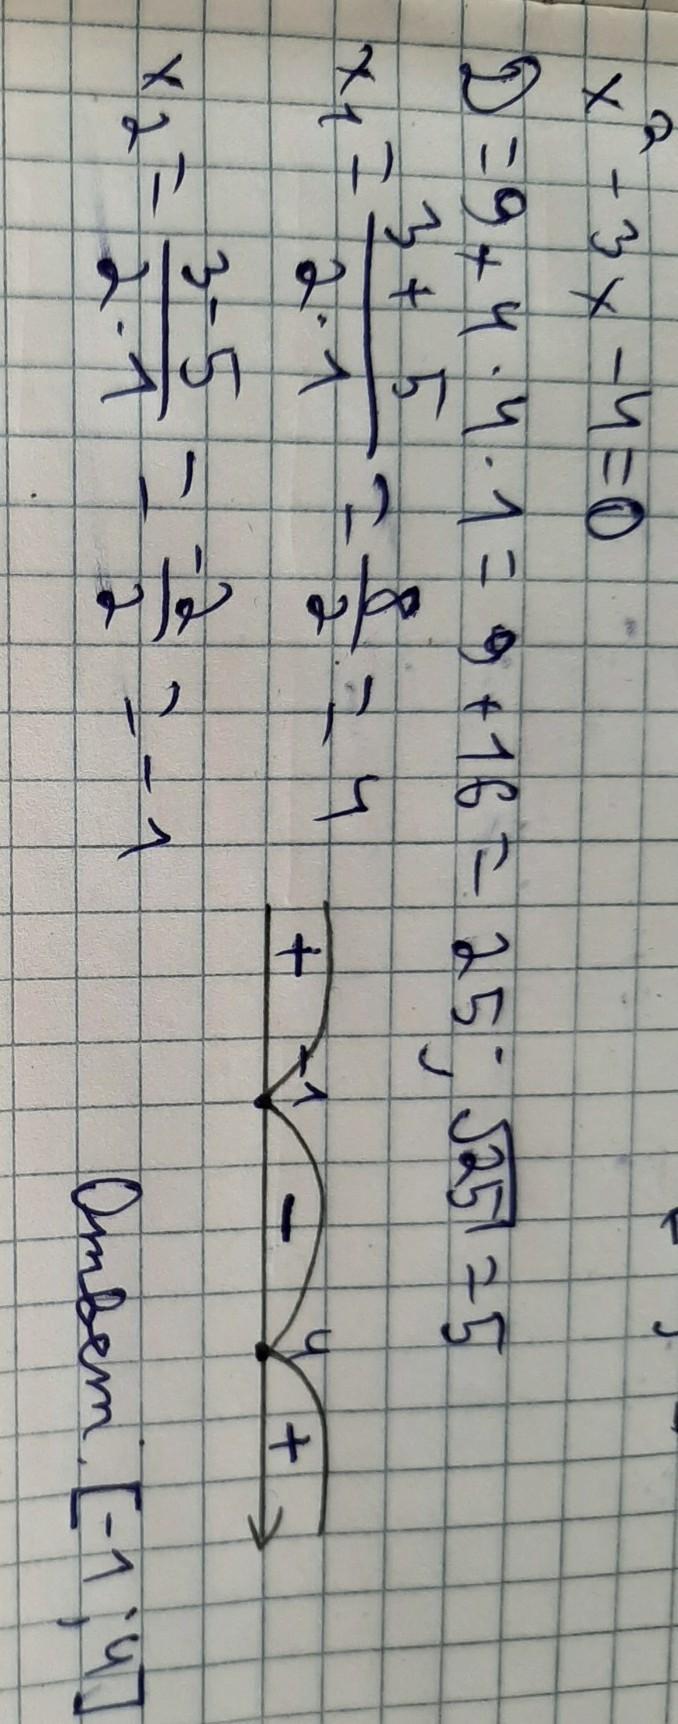 x² - 3x - 4 = 0
D = 9 + 4 · 4 · 1 = 9 + 16 = 25; √25 = 5
x₁ = (3 + 5)/(2 · 1) = 8/2 = 4
x₂ = (3 - 5)/(2 · 1) = -2/2 = -1
+ -1 - 4 +
Ответ: [-1; 4]